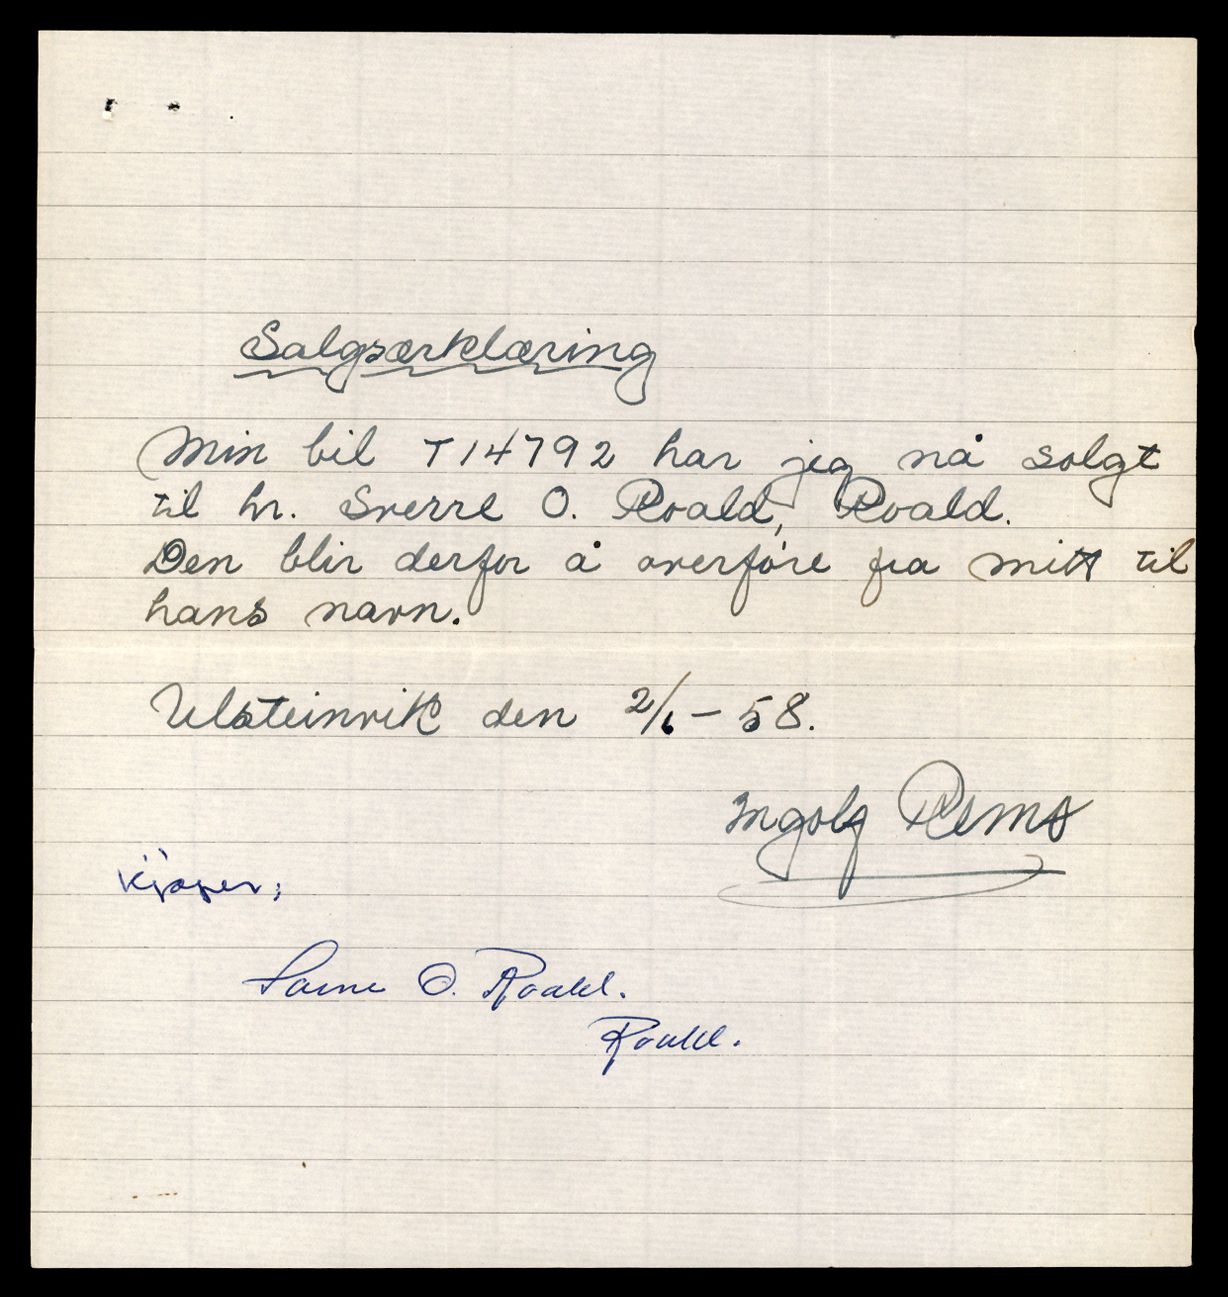 Salgsærklæring
Min bil T14792 har jeg nå solgt
til hr. Sverre O. Roald, Roald.
Den blir derfor å overføre fra mitt til
hans navn.
Ulsteinvik den 2/6-58.
Ingolf Rems
Kjøper;
Sverre O. Roald.
Roald.